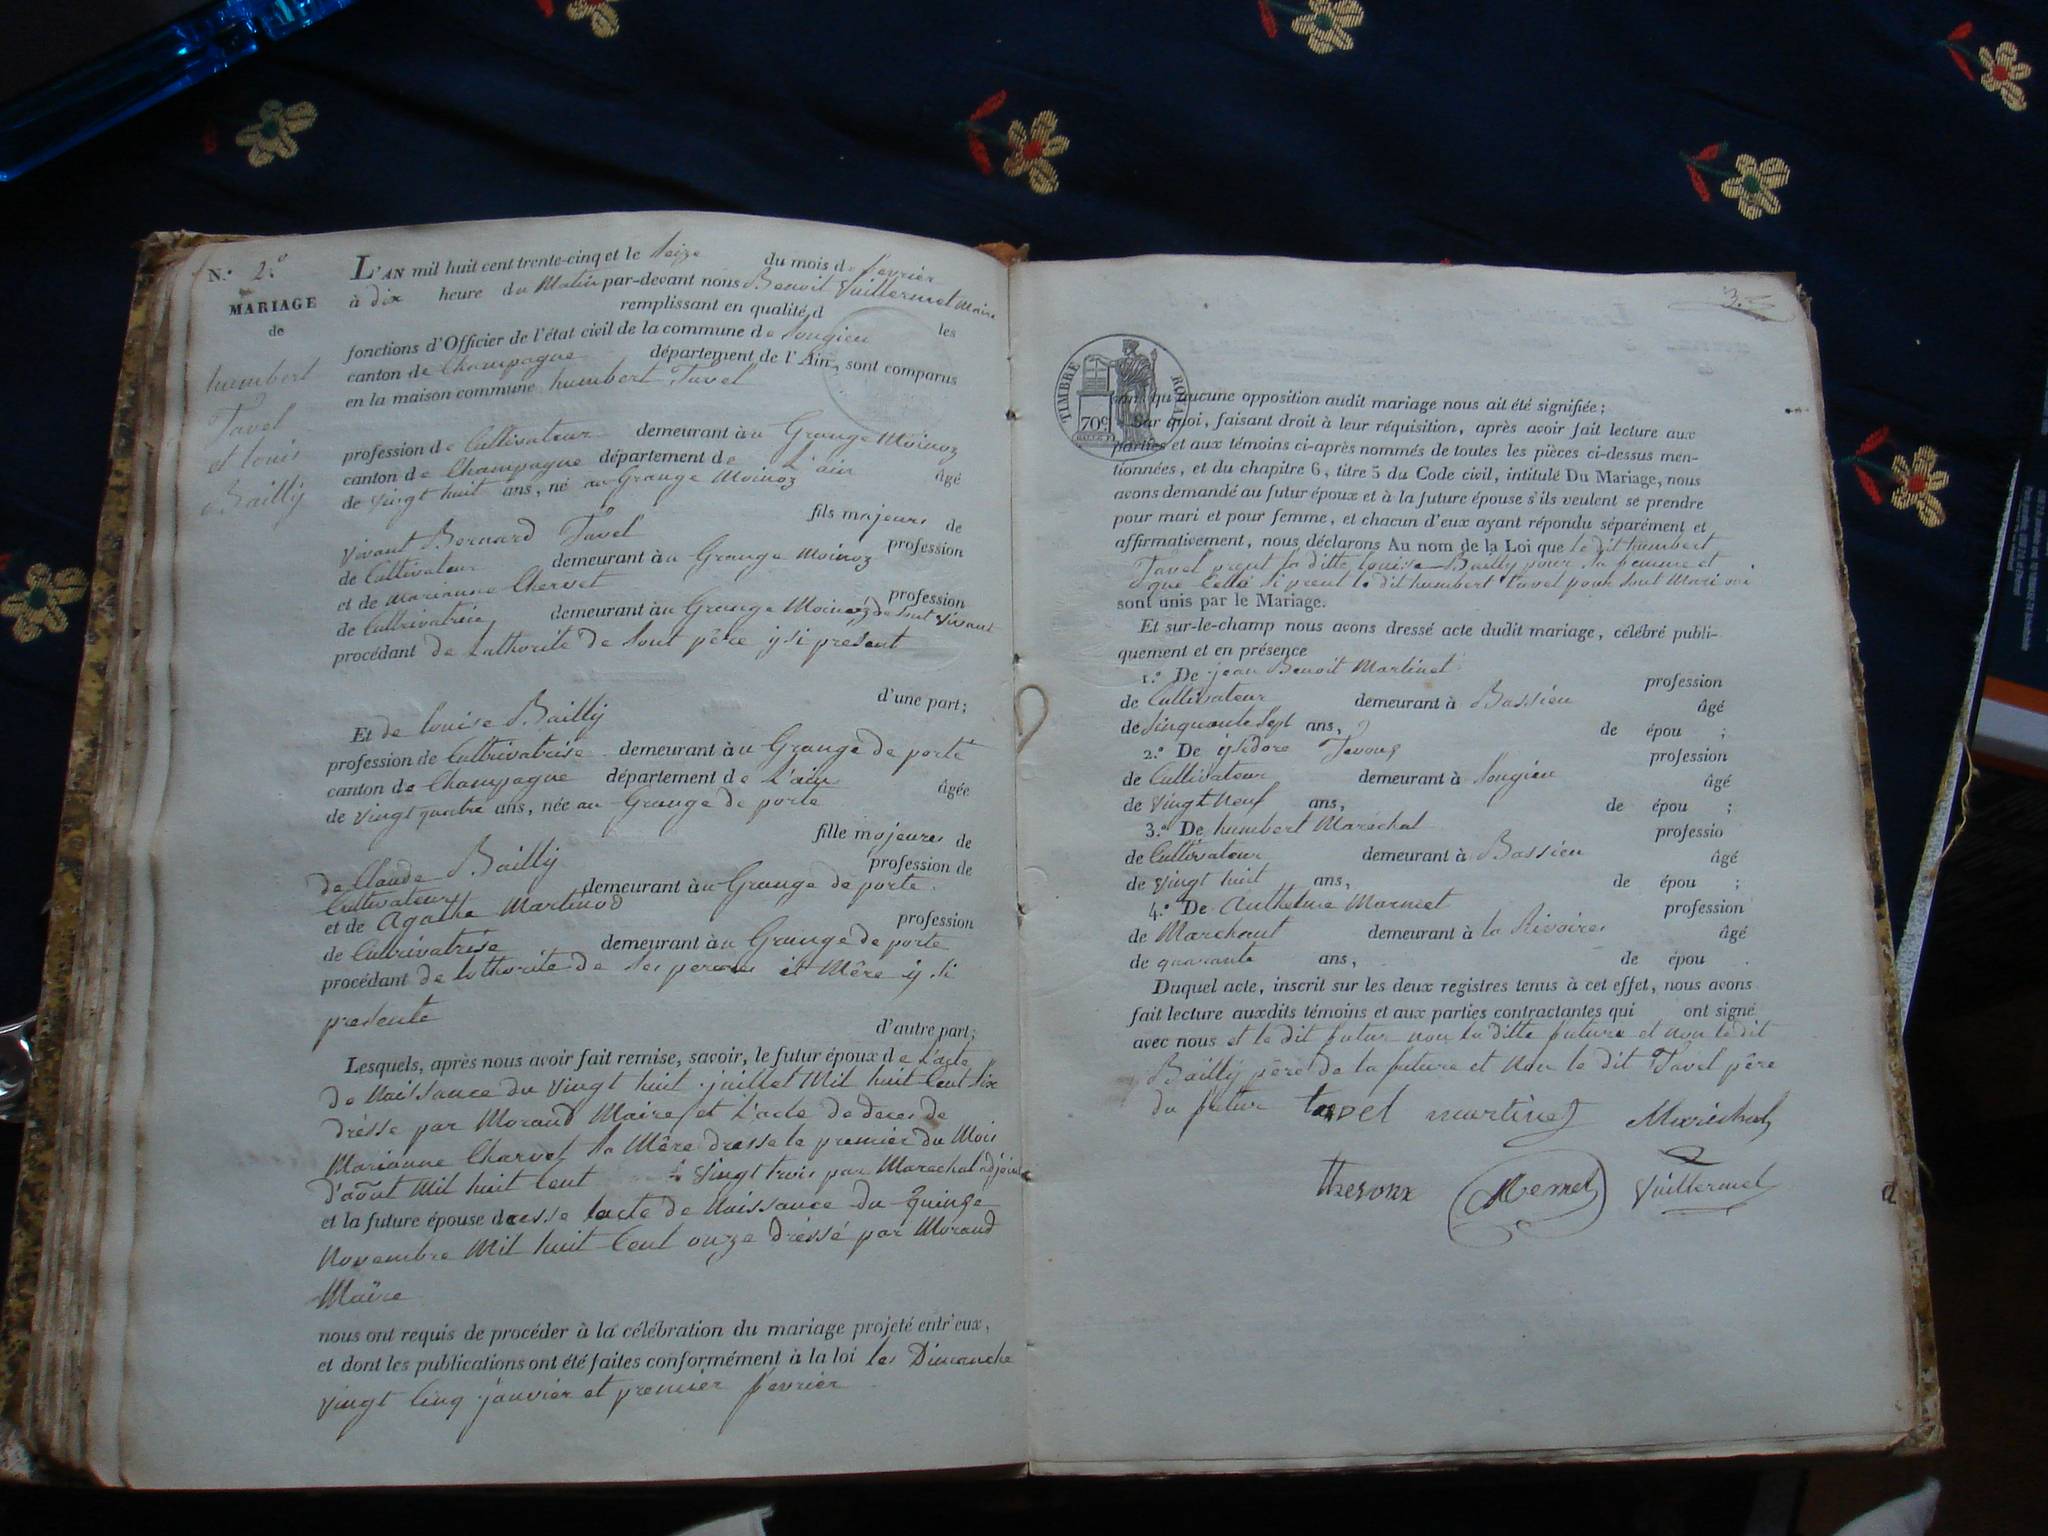 N.° 2.°
MARIAGE
de
humbert
Tavel
et louis
Bailly
L'AN mil huit cent trente-cinq et le seize du mois de fevrier
à dix heure du Matin par-devant nous Benoit Vuillermet Maire
remplissant en qualité d les
fonctions d'Officier de l'état civil de la commune de Songieu
canton de Champagne département de l'Ain, sont comparus
en la maison commune humbert Tavel
profession de Cultivateur demeurant à u Grange Moinoz
canton de Champagne département de L'ain âgé
de vingt huit ans, né au Grange Moinoz
fils majeur de
vivant Bernard Tavel profession
de Cultivateur demeurant à u Grange Moinoz
et de Marianne Chervet profession
de Cultivatrice demeurant à u Grange Moinoz de sont vivant
procédant de Lathorité de sont père y si present
d'une part;
Et de louise Bailly
profession de Cultivatrise demeurant à u Grange de porte
canton de Champagne département de L'ain âgée
de vingt quatre ans, née au Grange de porte
fille majeure de
de Claude Bailly profession de
Cultivateur demeurant à u Grange de porte
et de Agathe Martinod profession
de Cultivatrise demeurant à u Grange de porte
procédant de lothorité de ses et Mère y si
presente
d'autre part;
Lesquels, après nous avoir fait remise, savoir, le futur époux de L'acte
de Naissance du vingt huit juillet Mil huit Cent six
dresse par Morand Maire et L'acte de deces de
Marianne Charvet sa Mère dresse le premier du Mois
d'aout Mil huit Cent vingt trois par Marechal adjoint
et la future épouse dresse lacte de Naissance du Quinze
Novembre Mil huit Cent onze dressé par Morand
Maire
nous ont requis de procéder à la célébration du mariage projeté entr'eux,
et dont les publications ont été faites conformément à la loi les Dimanche
vingt Cinq janvier et premier fevrier
3.
TIMBRE ROYAL
70c
qu'aucune opposition audit mariage nous ait été signifiée;
Sur quoi, faisant droit à leur réquisition, après avoir fait lecture aux
parties et aux témoins ci-après nommés de toutes les pièces ci-dessus men-
tionnées, et du chapitre 6, titre 5 du Code civil, intitulé Du Mariage, nous
avons demandé au futur époux et à la future épouse s'ils veulent se prendre
pour mari et pour femme, et chacun d'eux ayant répondu séparément et
affirmativement, nous déclarons Au nom de la Loi que le dit humbert
Tavel prent la ditte louise Bailly pour sa femme et
que Cette si prent le dit humbert Tavel pour sont Mari
sont unis par le Mariage.
Et sur-le-champ nous avons dressé acte dudit mariage, célébré publi-
quement et en présence
1.° De jean Benoit Martinet profession
de Cultivateur demeurant à Bassieu âgé
de Sinquante Sept ans, de épou ;
2.° De ysidore profession
de Cultivateur demeurant à Songieu âgé
de vingt Neuf ans, de épou ;
3.° De humbert Maréchal professio
de Cultivateur demeurant à Bassieu âgé
de vingt huit ans, de épou ;
4.° De Anthelme Marmet profession
de Marchant demeurant à la Rivoire âgé
de quarante ans, de épou .
Duquel acte, inscrit sur les deux registres tenus à cet effet, nous avons
fait lecture auxdits témoins et aux parties contractantes qui ont signé
avec nous et le dit futur non la ditte future et Non le dit
Bailly père de la future et Non le dit Tavel père
du futur tavel martinet Maréchal
Vuillermet